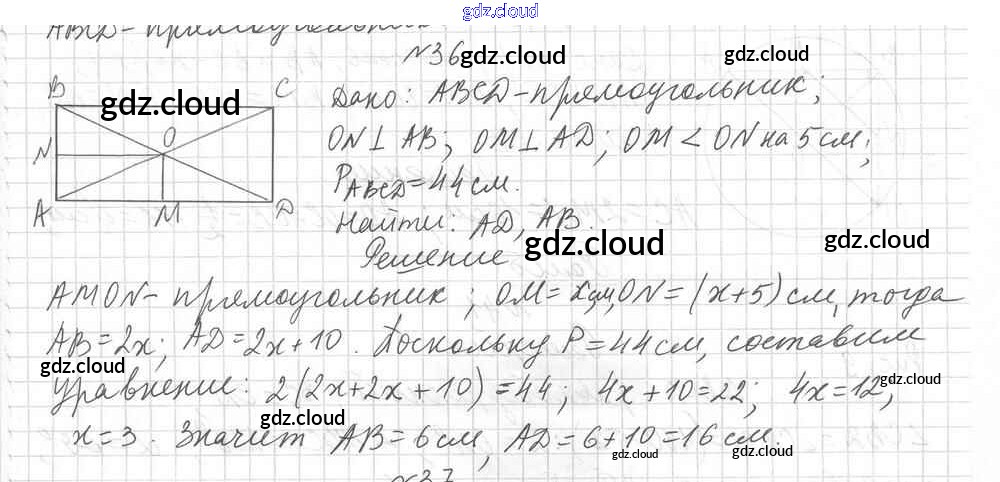 gdz.cloud
ABCD - прямоугольник
№36
gdz.cloud
gdz.cloud
B C
gdz.cloud
O
N
A M D
Дано: ABCD - прямоугольник;
ON ⊥ AB; OM ⊥ AD; OM < ON на 5 см;
P ABCD = 44 см.
Найти: AD, AB.
gdz.cloud
gdz.cloud
Решение
AMON - прямоугольник; OM = x см, ON = (x+5) см, тогда
AB = 2x; AD = 2x + 10. Поскольку P = 44 см, составим
gdz.cloud
gdz.cloud
уравнение: 2(2x+2x+10) = 44; 4x+10=22; 4x=12,
gdz.cloud
x = 3. Значит AB = 6 см, AD = 6+10 = 16 см.
gdz.cloud
gdz.cloud
№37